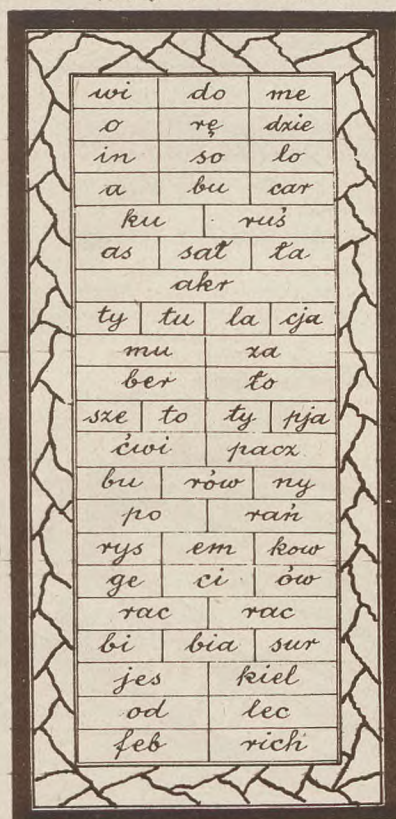 wi do me
o rę dzie
in so lo
a bu car
ku ruś
as sał ła
akr
ty tu la cja
mu za
ber to
sze to ty pja
ćwi pacz
bu rów ny
po rań
rys em kow
ge ci ów
rac rac
bi bia sur
jes kiel
od lec
feb rich